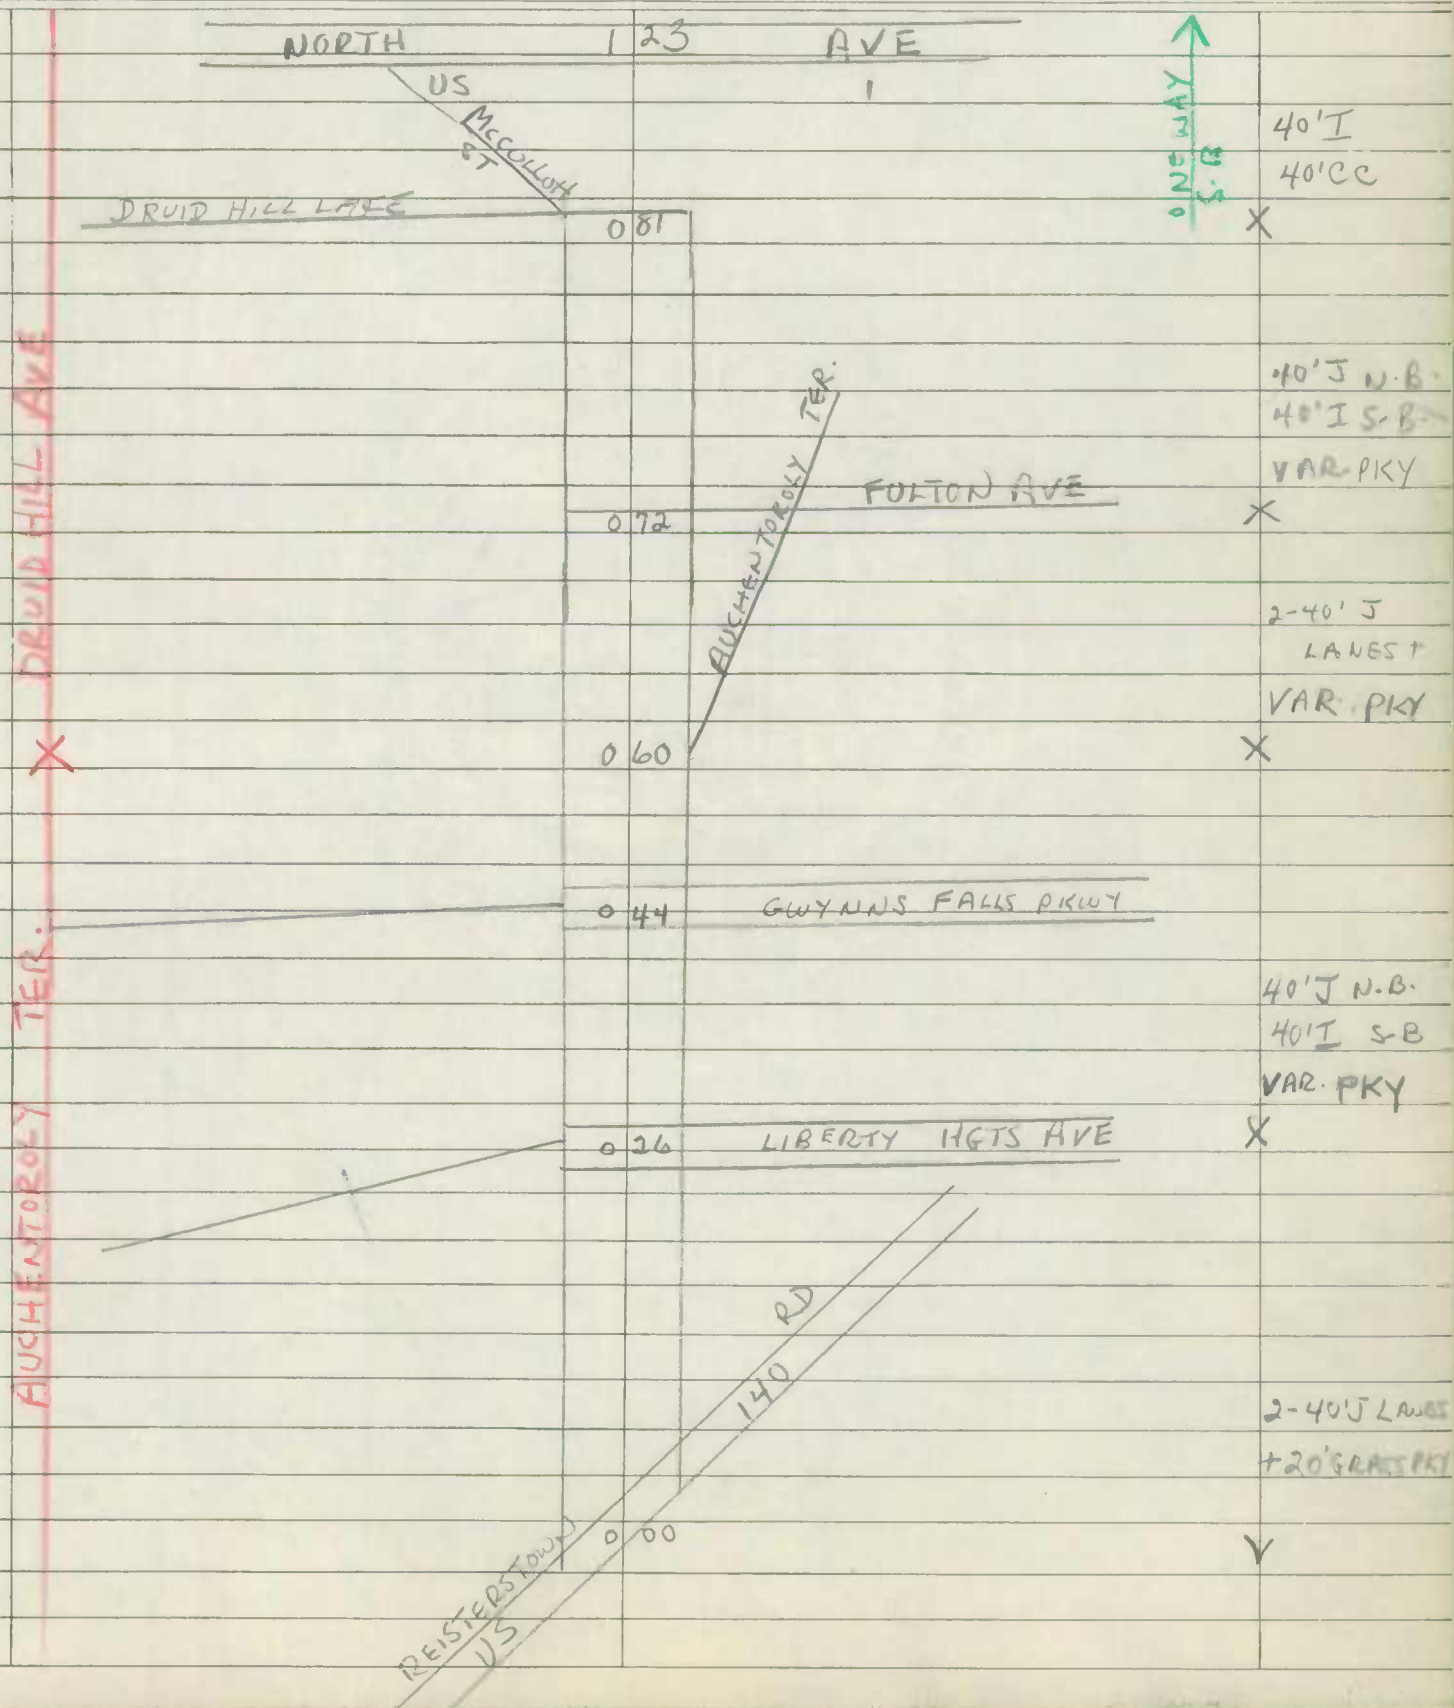 NORTH 1 23 AVE
US
1
McCULLOH
ST
ONE WAY
S.B
40' I
40' CC
X
DRUID HILL LAKE
0 81
DRUID HILL AVE
40' J N.B.
40' I S.B.
VAR PKY
X
AUCHENTOROLY TER.
FULTON AVE
0 72
2-40' J
LANES +
VAR. PKY
X
X
0 60
0 44 GWYNNS FALLS PKWY
AUCHENTOROLY TER.
40' J N.B.
40' I S-B
VAR. PKY
X
0 26 LIBERTY HGTS AVE
RD
140
2-40' J LANES
+20' GRASS PKY
0 00
REISTERSTOWN
US